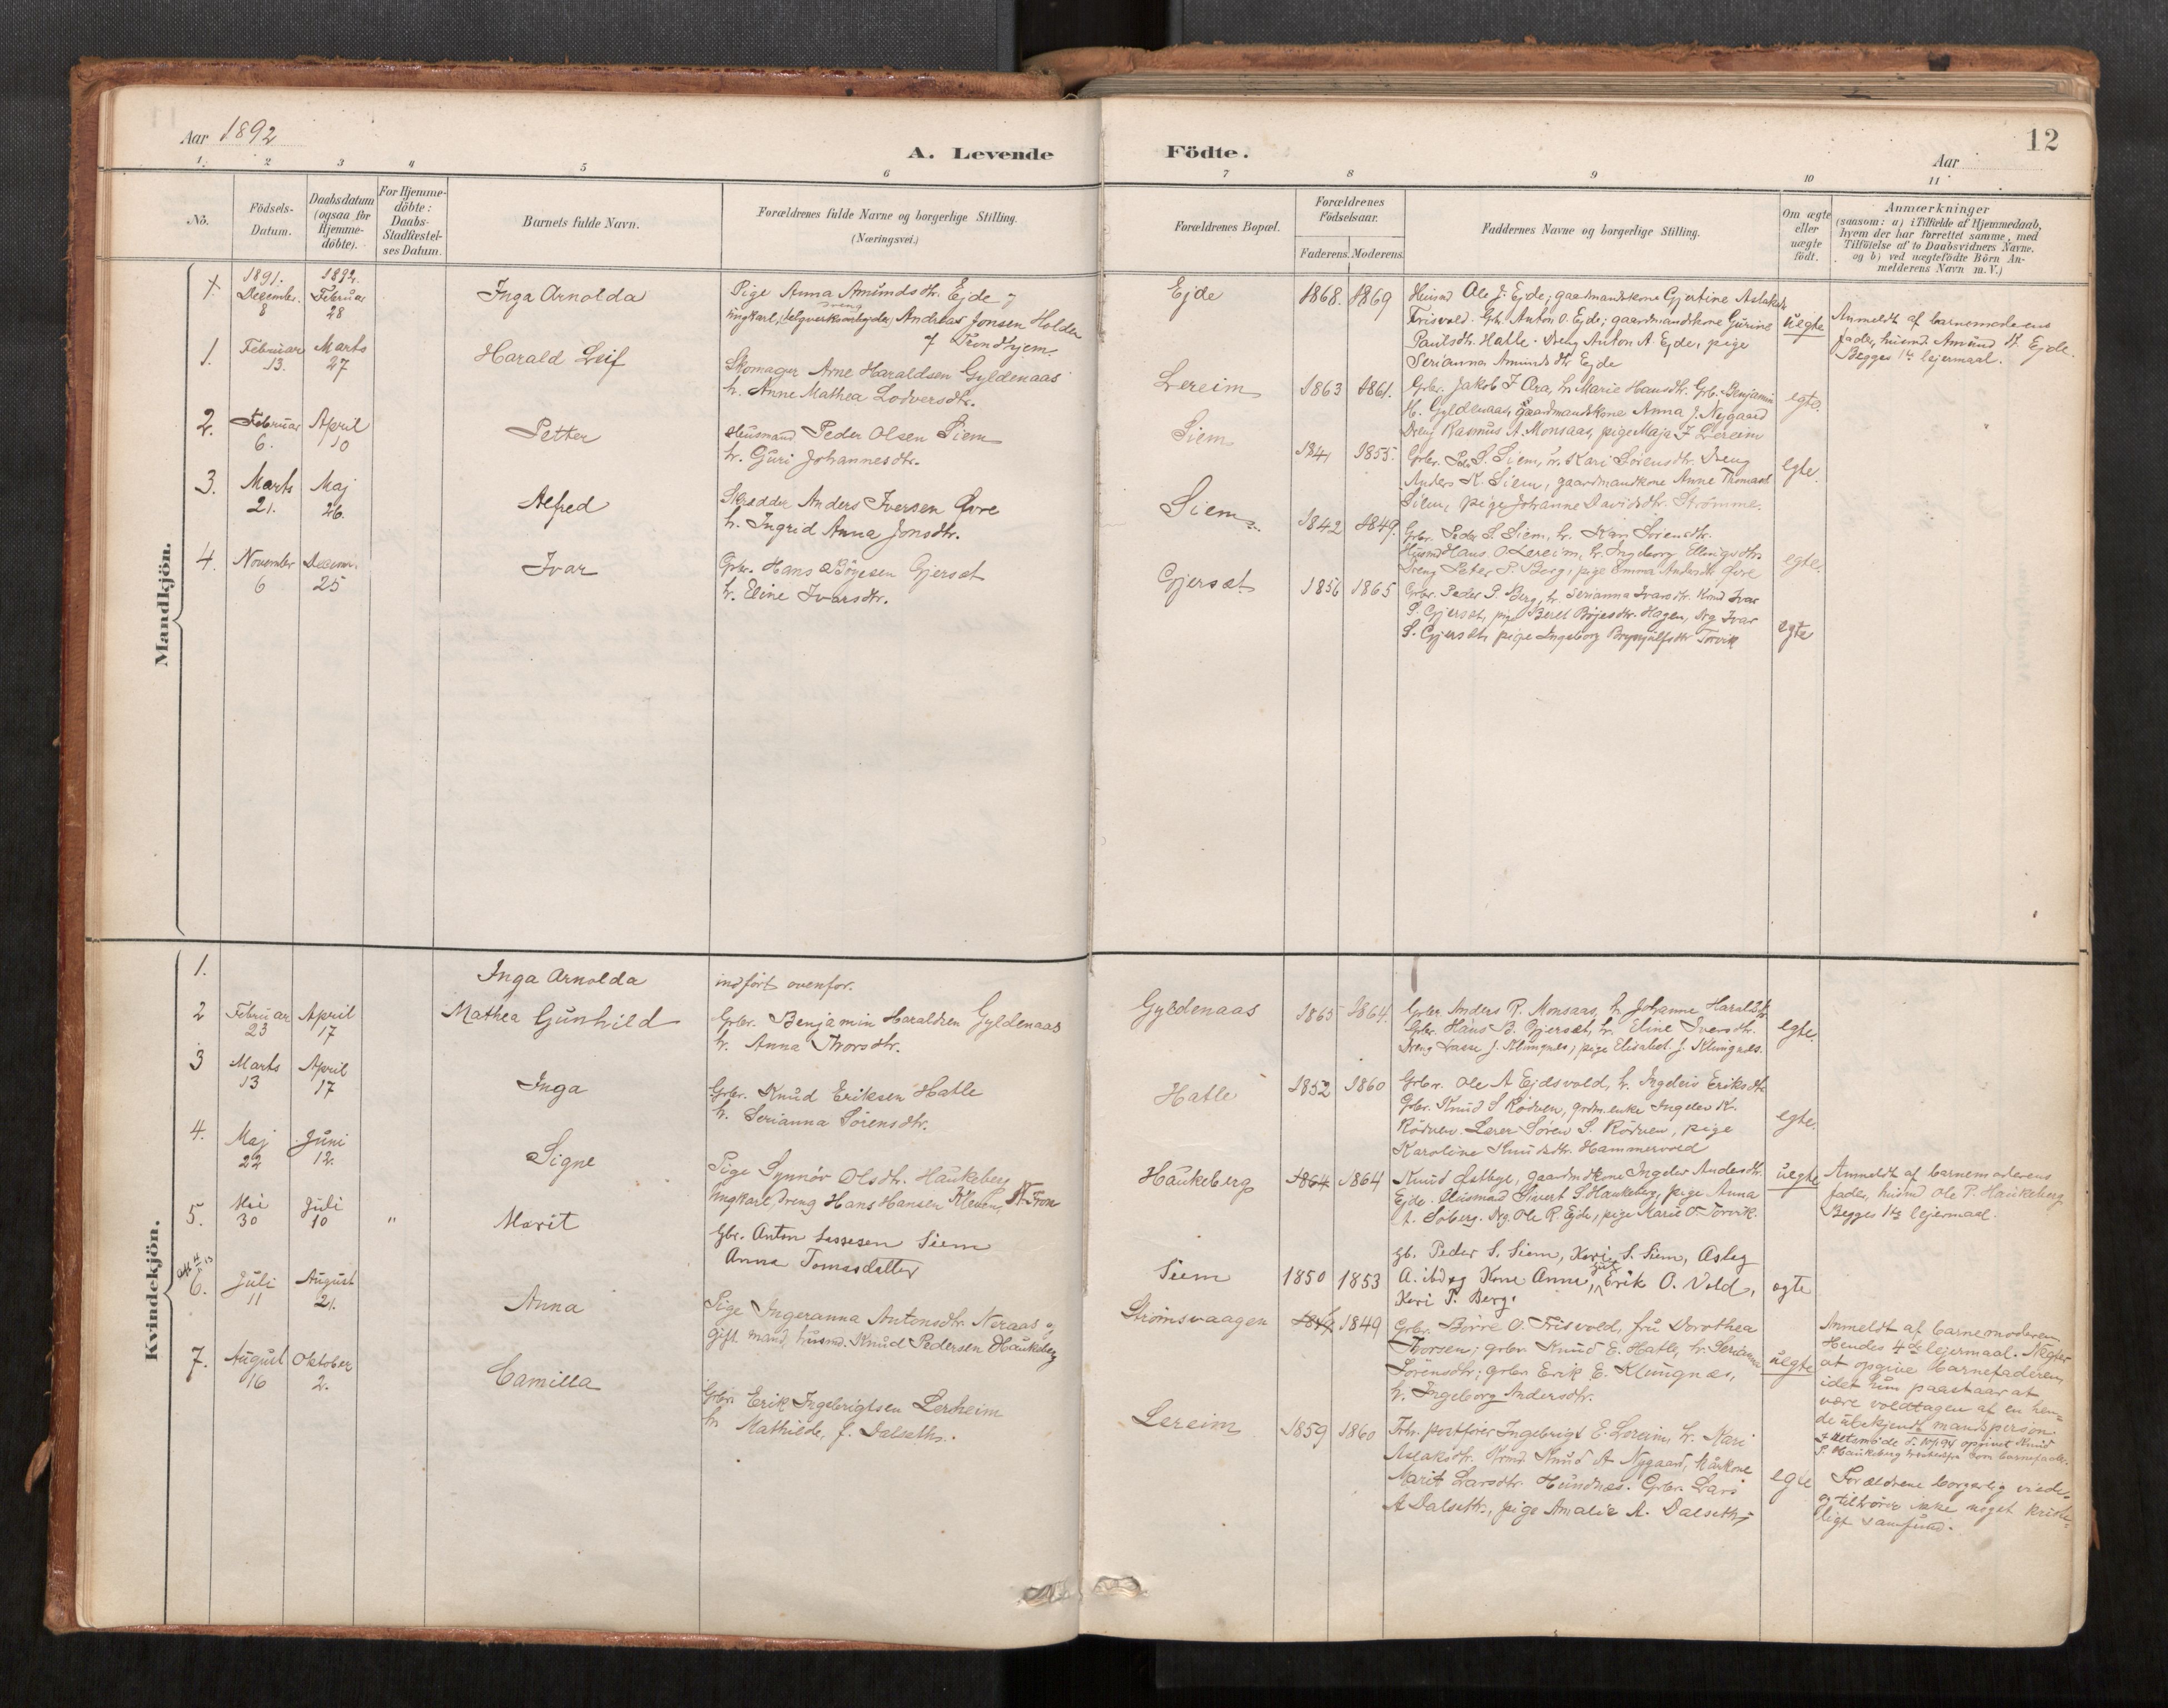 Aar 1892
A. Levende
Födte.
Aar
12
1. 2 3 4 5 6 7 8 9 10 11
No.
Födsels-
Datum.
Daabsdatum
(ogsaa for
Hjemme-
döbte).
For Hjemme-
döbte:
Daabs-
Stadfæstel-
ses Datum.
Barnets fulde Navn.
Forældrenes fulde Navne og borgerlige Stilling.
(Næringsvei.)
Forældrenes Bopæl.
Forældrenes
Födselsaar.
Faderens. Moderens.
Faddernes Navne og borgerlige Stilling.
Om ægte
eller
uægte
födt.
Anmærkninger
(saasom: a) i Tilfælde af Hjemmedaab,
hvem der har forrettet samme, med
Tilföielse af to Daabsvidners Navne.
og b) ved uægtefödte Börn An-
melderens Navn m. V.)
Mandkjön.
1.
1891.
December
8
1892.
Februar
28
Inga Arnolda
Pige Anna Amundsdtr. Ejde og
ungkarl, Andreas Jonsen Holden
af Trondhjem.
Ejde
1868. 1869
Husmd Ole J. Ejde; gaardmandskone Gjertine Aslaksdtr
Frisvold. Gbr. Anton O. Ejde; gaardmandskone Gurine
Paulsdtr. Hatle. Dreng Anton A. Ejde, pige
Serianna Amundsdtr Ejde
uegte
Anmeldt af barnemoderens
fader, husmd. Amund K. Ejde.
Begges 1te lejermaal.
1.
Februar
13.
Marts
27
Harald Leif
Skomager Arne Haraldsen Gyldenaas
h. Anne Mathea Lodversdtr.
Lereim
1863 1861.
Grbr. Jakob J Ora, h. Marie Hansdtr. Grb. Benjamin
H. Gyldenaas, gaardmandskone Anna J. Nygaard
Dreng Rasmus A. Monsaas, pige Maja J Lereim
egte.
2.
Februar
6.
April
10
Petter
Husmand Peder Olsen Siem
h. Guri Johannesdtr.
Siem
1841 1855.
Grbr. Peder S. Siem, h. Kari Sörensdtr. Dreng
Anders K. Siem, gaardmandkone Anne Thomasdtr
Siem, pige Johanne Davidsdtr. Strömme.
egte.
3.
Marts
21.
Maj
26.
Alfred
Skrædder Anders Iversen Øvre
h. Ingrid Anna Jonsdtr.
Siem
1842 1849.
Grbr. Peder S. Siem, h. Kari Sörensdtr.
Husmd Hans O Lereim, h. Ingeborg Ellingsdtr.
Dreng Peter P. Berg, pige Emma Andersdtr Øvre
egte.
4.
November
6
Decem.
25
Ivar
Grbr. Hans Böyesen Gjersæt
h. Eline Ivarsdtr.
Gjersæt
1856 1865
Grbr. Peder P. Berg, h. Serianna Ivarsdtr. Ivar
P. Gjersæt, pige Beret Böjesdtr. Hagen, Drg Ivar
S. Gjersæt, pige Ingeborg Brynjulfsdtr Torvik
egte
Kvindekjön.
1.
Inga Arnolda
indfört ovenfor.
2
Februar
23
April
17
Mathea Gunhild
Grbr. Benjamin Haraldsen Gyldenaas
h. Anna Thorsdtr.
Gyldenaas
1865 1864.
Grbr. Anders R. Monsaas, h. Johanne Haraldsdtr
Grbr. Hans B. Gjersæt, h. Eline Iversdtr.
Dreng Lasse J. Klungnes, pige Elisabet J. Klungnes.
egte.
3
Marts
13
April
17
Inga
Grbr. Knud Eriksen Hatle
h. Serianna Sörensdtr.
Hatle
1852 1860
Grbr. Ole A Ejdsvold, h. Ingeleiv Eriksdtr
Grbr. Knud S Rödven, grdm.enke Ingelev K.
Rödven. Lærer Sören S. Rödven, pige
Karoline Knudsdtr. Hammervold
egte.
4.
Maj
22
Juni
12.
Signe
Pige Synnöv Olsdtr. Haukeberg
ungkarl, dreng Hans Hansen Kleven, N. Fron
Haukeberg
1864 1864
Knud Østbye, gaardmdkone Ingelev Andersdtr.
Ejde. Husmand Sivert S. Haukeberg, pige Anna
A. Soberg. Drg. Ole R. Ejde, pige Marie O. Torvik.
uegte
Anmeldt af barnemoderens
fader, husmd Ole P. Haukeberg
Begges 1te lejermaal.
5.
Mai
30
Juli
10
"
Marit
Gbr. Anton Lassesen Siem
Anna Tomasdatter
Siem
1850 1853
Gb. Peder S. Siem, Kari S. Siem, Aslag
A. ibid og Kone Anne, Erik O. Vold,
Kari P. Berg.
egte
6.
Juli
11
August
21.
Anna
Pige Ingeranna Antonsdtr. Neraas og
gift mand, husmd. Knud Pedersen Haukeberg
Strömsvaagen
1849
Grbr. Börre O. Frisvold, fru Dorothea
Thorsen; grbr. Knud E. Hatle, h. Serianna
Sörensdtr; grbr Erik E. Klungnæs,
h. Ingeborg Andersdtr.
uegte
Anmeldt af barnemoderen
Hendes 4de lejermaal. Negter
at opgive barnefaderen,
idet hun paastaar at
være voldtagen af en hen-
de ubekjendt mandsperson.
P. Haukeberg som barnefader.
7.
August
16
Oktober
2.
Camilla
Grbr. Erik Ingebrigtsen Lerheim
h. Mathilde, f. Dalseth.
Lereim
1859 1860
Fhv. postförer Ingebrigt E. Lereim, h. Mari
Aslaksdtr. Knud A Nygaard,
Marit Larsdtr. Hundnes. Grbr. Lars
A Dalseth, pige Amalie A. Dalseth
egte
Forældrene borgerlig viede,
og tilhörer ikke noget krist-
ligt samfund.